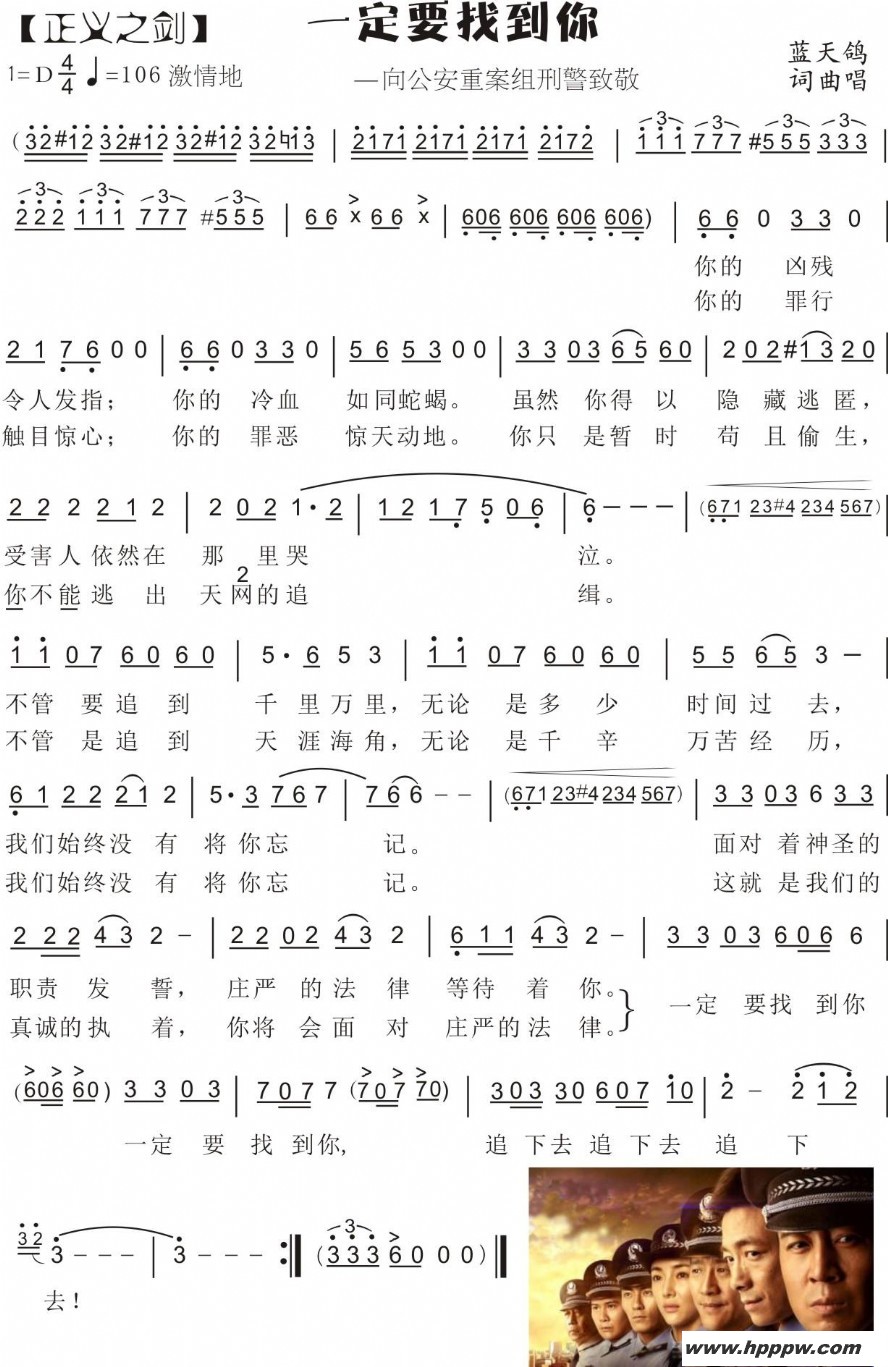 【正义之剑】 一定要找到你
1=D 4/4 ♩=106 激情地 —向公安重案组刑警致敬 蓝天鸽
词曲唱
(32#12 32#12 32#12 32♮13 | 2171 2171 2171 2172 | 111 777 #555 333 |
222 111 777 #555 | 66 x 66 x | 606 606 606 606) | 66 0 33 0 |
你的 凶残
你的 罪行
21 76 0 0 | 66 0 33 0 | 56 53 0 0 | 33 03 65 60 | 2 02 #13 20 |
令人发指； 你的 冷血 如同蛇蝎。 虽然 你得 以 隐 藏 逃 匿，
触目惊心； 你的 罪恶 惊天动地。 你只 是暂 时 苟 且 偷 生，
22 2 21 2 | 2 02 1·2 | 12 17 5 06 | 6 — — — | (671 23#4 234 567) |
受害人 依然在 那 里哭 泣。
2
你不能 逃 出 天网的追 缉。
11 07 60 60 | 5· 6 5 3 | 11 07 60 60 | 55 65 3 — |
不管 要 追 到 千 里 万 里，无论 是 多 少 时间 过 去，
不管 是 追 到 天 涯 海 角，无论 是 千 辛 万苦 经 历，
61 22 21 2 | 5· 3 767 | 766 - - | (671 23#4 234 567) | 33 03 6 33 |
我们始终没 有 将 你忘 记。 面对 着神圣的
我们始终没 有 将 你忘 记。 这就 是我们的
2 22 43 2 - | 22 02 43 2 | 6 11 43 2 - | 33 03 606 6 |
职责 发 誓， 庄严 的 法 律 等待 着 你。
一定 要找 到你
真诚的执 着， 你将 会 面 对 庄严的 法 律。
(606 60) 33 03 | 707 7 (707 70) | 303 30 607 10 | 2 - 212 |
一定 要 找 到你, 追 下去 追 下去 追 下
32 3 - - - | 3 - - - :|| (333 6000) ||
去！
www.hpppw.com